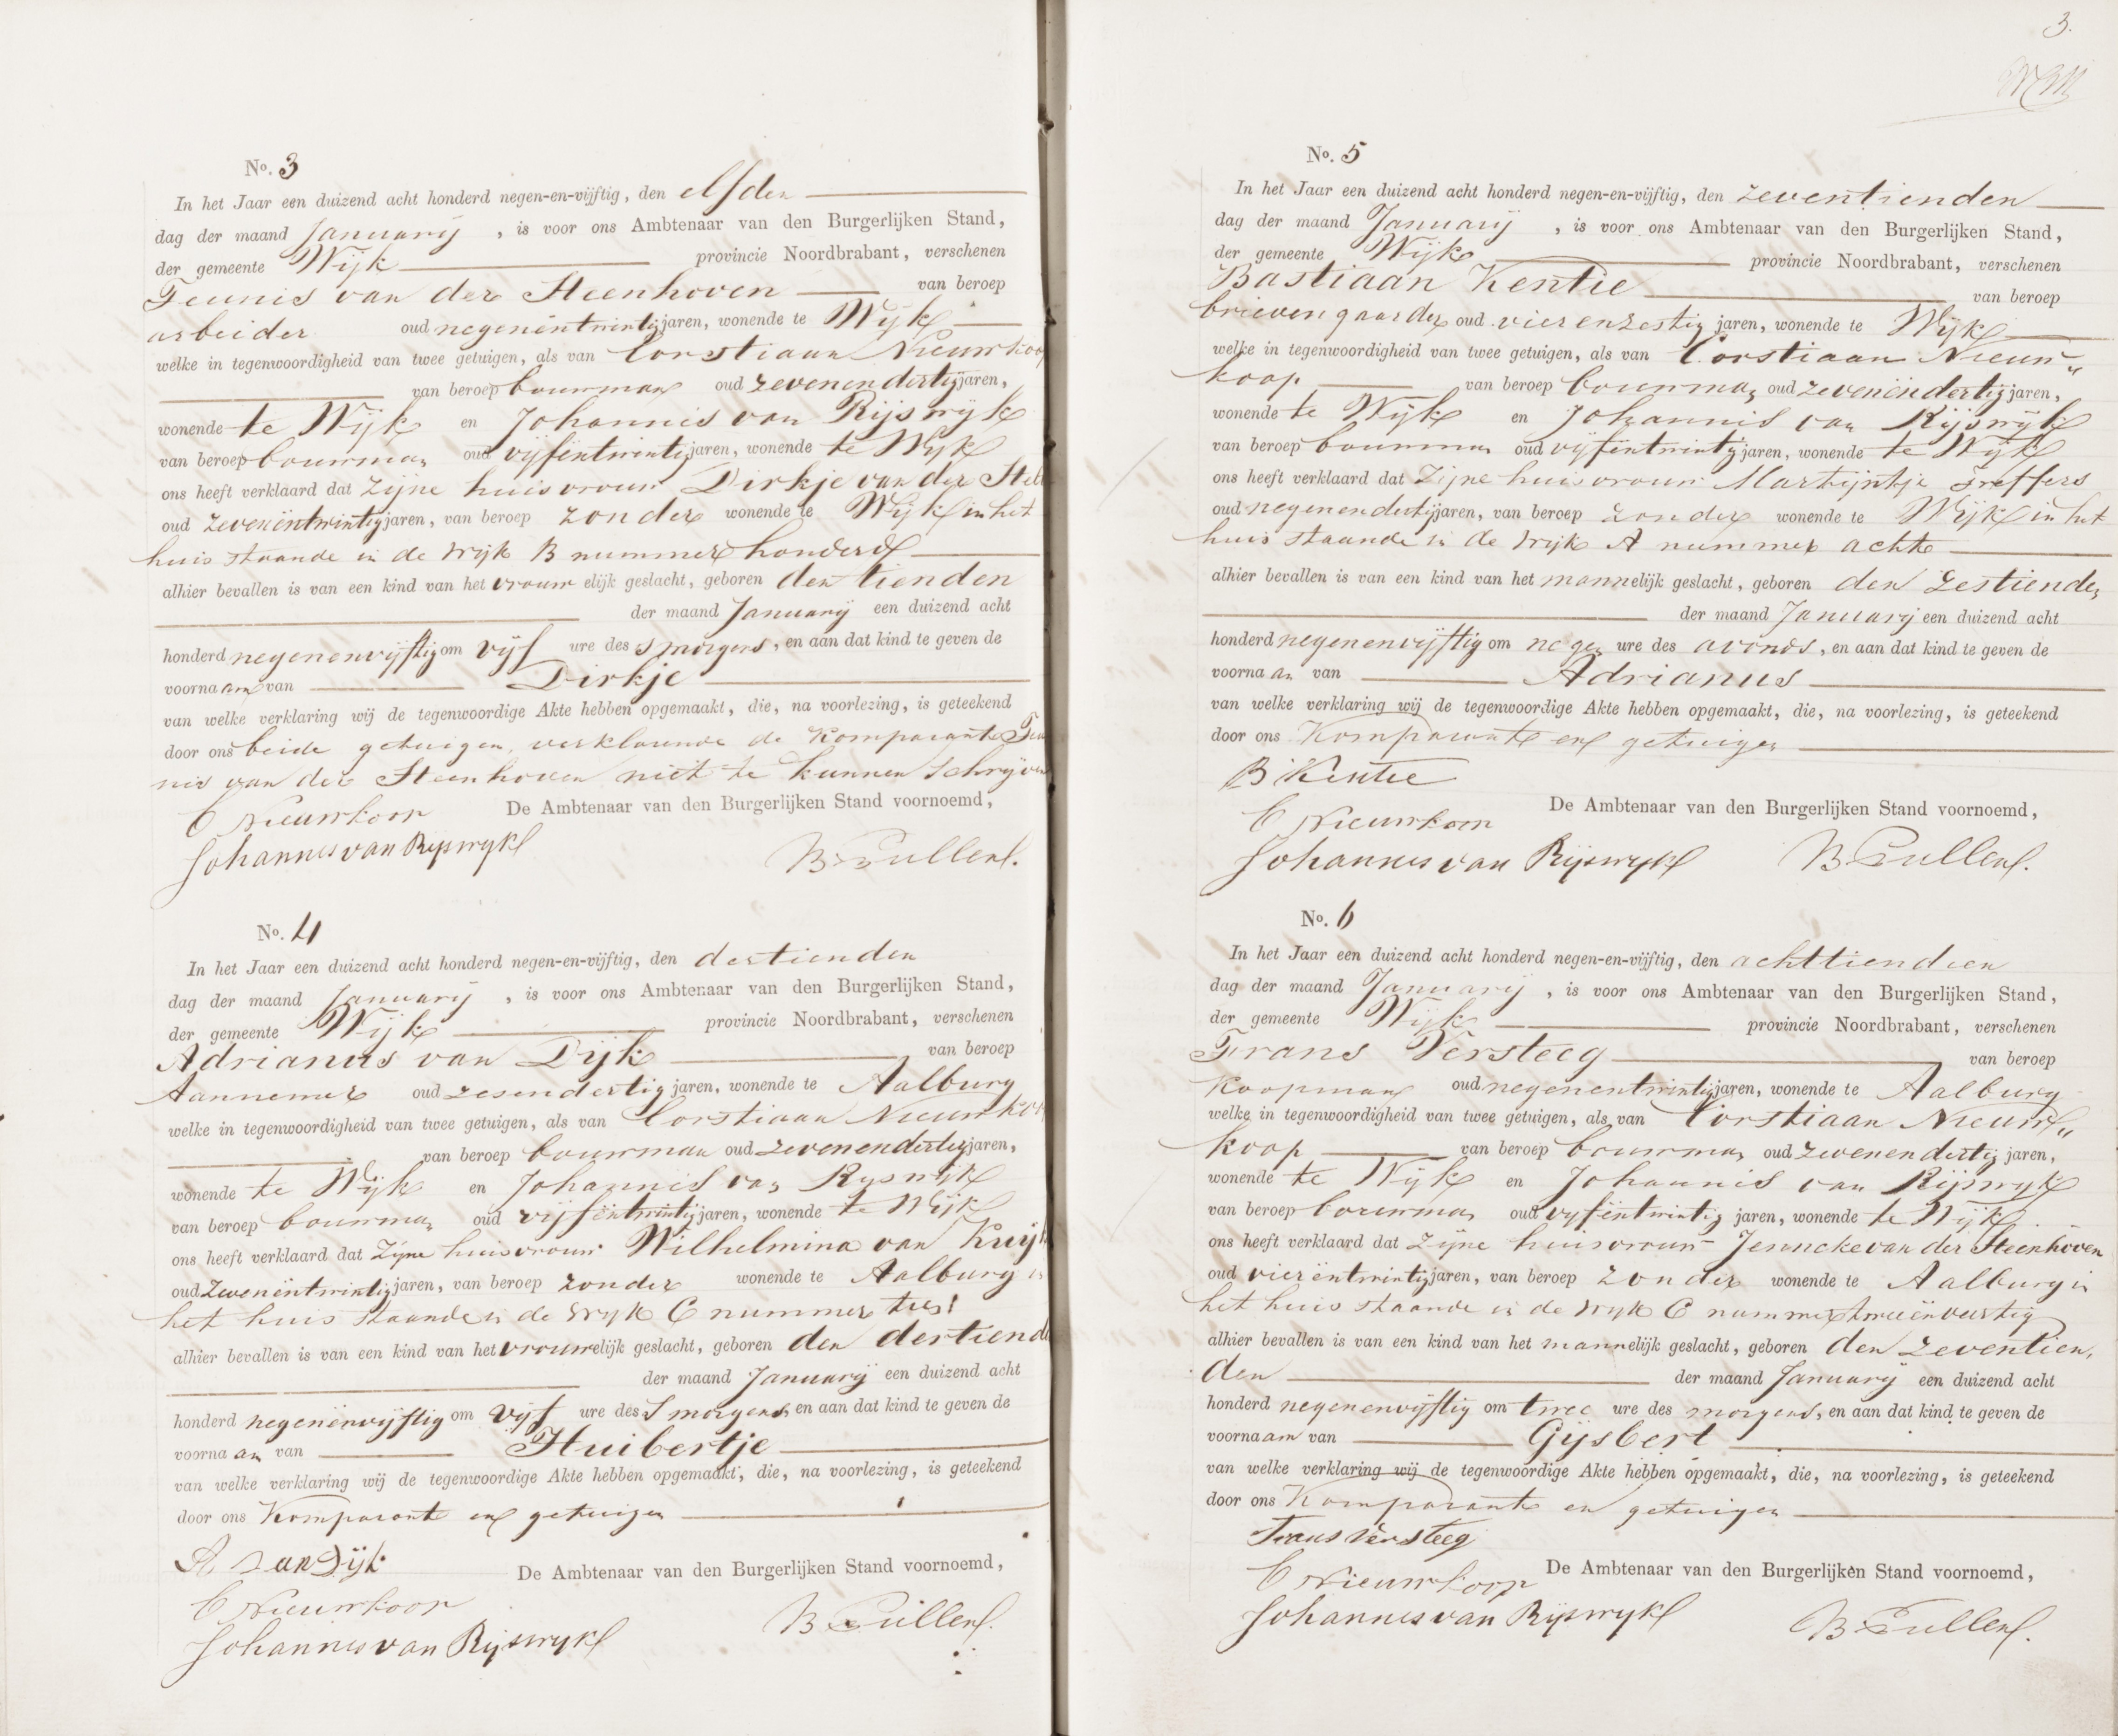 No. 3
In het Jaar een duizend acht honderd negen-en-vijftig, den elfden
dag der maand Januarij , is voor ons Ambtenaar van den Burgerlijken Stand,
der gemeente Wijk provincie Noordbrabant, verschenen
Teunis van der Steenhoven van beroep
arbeider oud negenëntwintig jaren, wonende te Wijk
welke in tegenwoordigheid van twee getuigen, als van Corstiaan Nieuwkoop
van beroep bouwman oud zevenendertig jaren,
wonende te Wijk en Johannis van Rijswijk
van beroep bouwman oud vijfëntwintig jaren, wonende te Wijk
ons heeft verklaard dat zijne huisvrouw Dirkje van der
oud zevenëntwintig jaren, van beroep zonder wonende te Wijk in het
huis staande in de wijk B nummer honderd
alhier bevallen is van een kind van het vrouwelijk geslacht, geboren den tienden
der maand Januarij een duizend acht
honderd negenenvijftig om vijf ure des smorgens, en aan dat kind te geven de
voornaam van Dirkje
van welke verklaring wij de tegenwoordige Akte hebben opgemaakt, die, na voorlezing, is geteekend
door ons beide getuigen, verklarende de Komparante Teu
nis van der Steenhoven niet te kunnen schrijven
C Nieuwkoop De Ambtenaar van den Burgerlijken Stand voornoemd,
Johannes van Rijswijk B Pullen.
No. 4
In het Jaar een duizend acht honderd negen-en-vijftig, den dertienden
dag der maand Januarij , is voor ons Ambtenaar van den Burgerlijken Stand,
der gemeente Wijk provincie Noordbrabant, verschenen
Adrianus van Dijk van beroep
Aannemer oud zesendertig jaren, wonende te Aalburg
welke in tegenwoordigheid van twee getuigen, als van Corstiaan Nieuwkoop
van beroep bouwman oud zevenendertig jaren,
wonende te Wijk en Johannis van Rijswijk
van beroep bouwman oud vijfëntwintig jaren, wonende te Wijk
ons heeft verklaard dat zijne huisvrouw Wilhelmina van
oud zevenëntwintig jaren, van beroep zonder wonende te Aalburg in
het huis staande in de wijk C nummer
alhier bevallen is van een kind van het vrouwelijk geslacht, geboren den dertienden
der maand Januarij een duizend acht
honderd negenënvijftig om vijf ure des smorgens, en aan dat kind te geven de
voornaam van Huibertje
van welke verklaring wij de tegenwoordige Akte hebben opgemaakt, die, na voorlezing, is geteekend
door ons Komparant en getuigen
A van Dijk De Ambtenaar van den Burgerlijken Stand voornoemd,
C Nieuwkoop
Johannes van Rijswijk B Pullen.
3.
No. 5
In het Jaar een duizend acht honderd negen-en-vijftig, den zeventienden
dag der maand Januarij , is voor ons Ambtenaar van den Burgerlijken Stand,
der gemeente Wijk provincie Noordbrabant, verschenen
Bastiaan Kentie van beroep
brievengaarder oud vierenzestig jaren, wonende te Wijk
welke in tegenwoordigheid van twee getuigen, als van Corstiaan Nieuw„
koop van beroep bouwman oud zevenëndertig jaren,
wonende te Wijk en Johannis van Rijswijk
van beroep bouwman oud vijfëntwintig jaren, wonende te Wijk
ons heeft verklaard dat zijne huisvrouw Martijntje Treffers
oud negenendertig jaren, van beroep zonder wonende te Wijk in het
huis staande in de wijk A nummer acht
alhier bevallen is van een kind van het mannelijk geslacht, geboren den zestienden
der maand Januarij een duizend acht
honderd negenenvijftig om negen ure des avonds, en aan dat kind te geven de
voornaam van Adrianus
van welke verklaring wij de tegenwoordige Akte hebben opgemaakt, die, na voorlezing, is geteekend
door ons Komparant en getuigen
B Kentie
De Ambtenaar van den Burgerlijken Stand voornoemd,
C Nieuwkoop
Johannes van Rijswijk B Pullen.
No. 6
In het Jaar een duizend acht honderd negen-en-vijftig, den achttienden
dag der maand Januarij , is voor ons Ambtenaar van den Burgerlijken Stand,
der gemeente Wijk provincie Noordbrabant, verschenen
Frans Versteeg van beroep
Koopman oud negenentwintig jaren, wonende te Aalburg
welke in tegenwoordigheid van twee getuigen, als van Corstiaan Nieuw„
koop van beroep bouwman oud zevenendertig jaren,
wonende te Wijk en Johannis van Rijswijk
van beroep bouwman oud vijfëntwintig jaren, wonende te Wijk
ons heeft verklaard dat zijne huisvrouw Jenneke van der Steenhoven
oud vierëntwintig jaren, van beroep zonder wonende te Aalburg in
het huis staande in de wijk C nummer tweeënveertig
alhier bevallen is van een kind van het mannelijk geslacht, geboren den zeventien,
den der maand Januarij een duizend acht
honderd negenenvijftig om twee ure des morgens, en aan dat kind te geven de
voornaam van Gijsbert
van welke verklaring wij de tegenwoordige Akte hebben opgemaakt, die, na voorlezing, is geteekend
door ons Komparant en getuigen
Frans Versteeg
De Ambtenaar van den Burgerlijken Stand voornoemd,
C Nieuwkoop
Johannes van Rijswijk B Pullen.